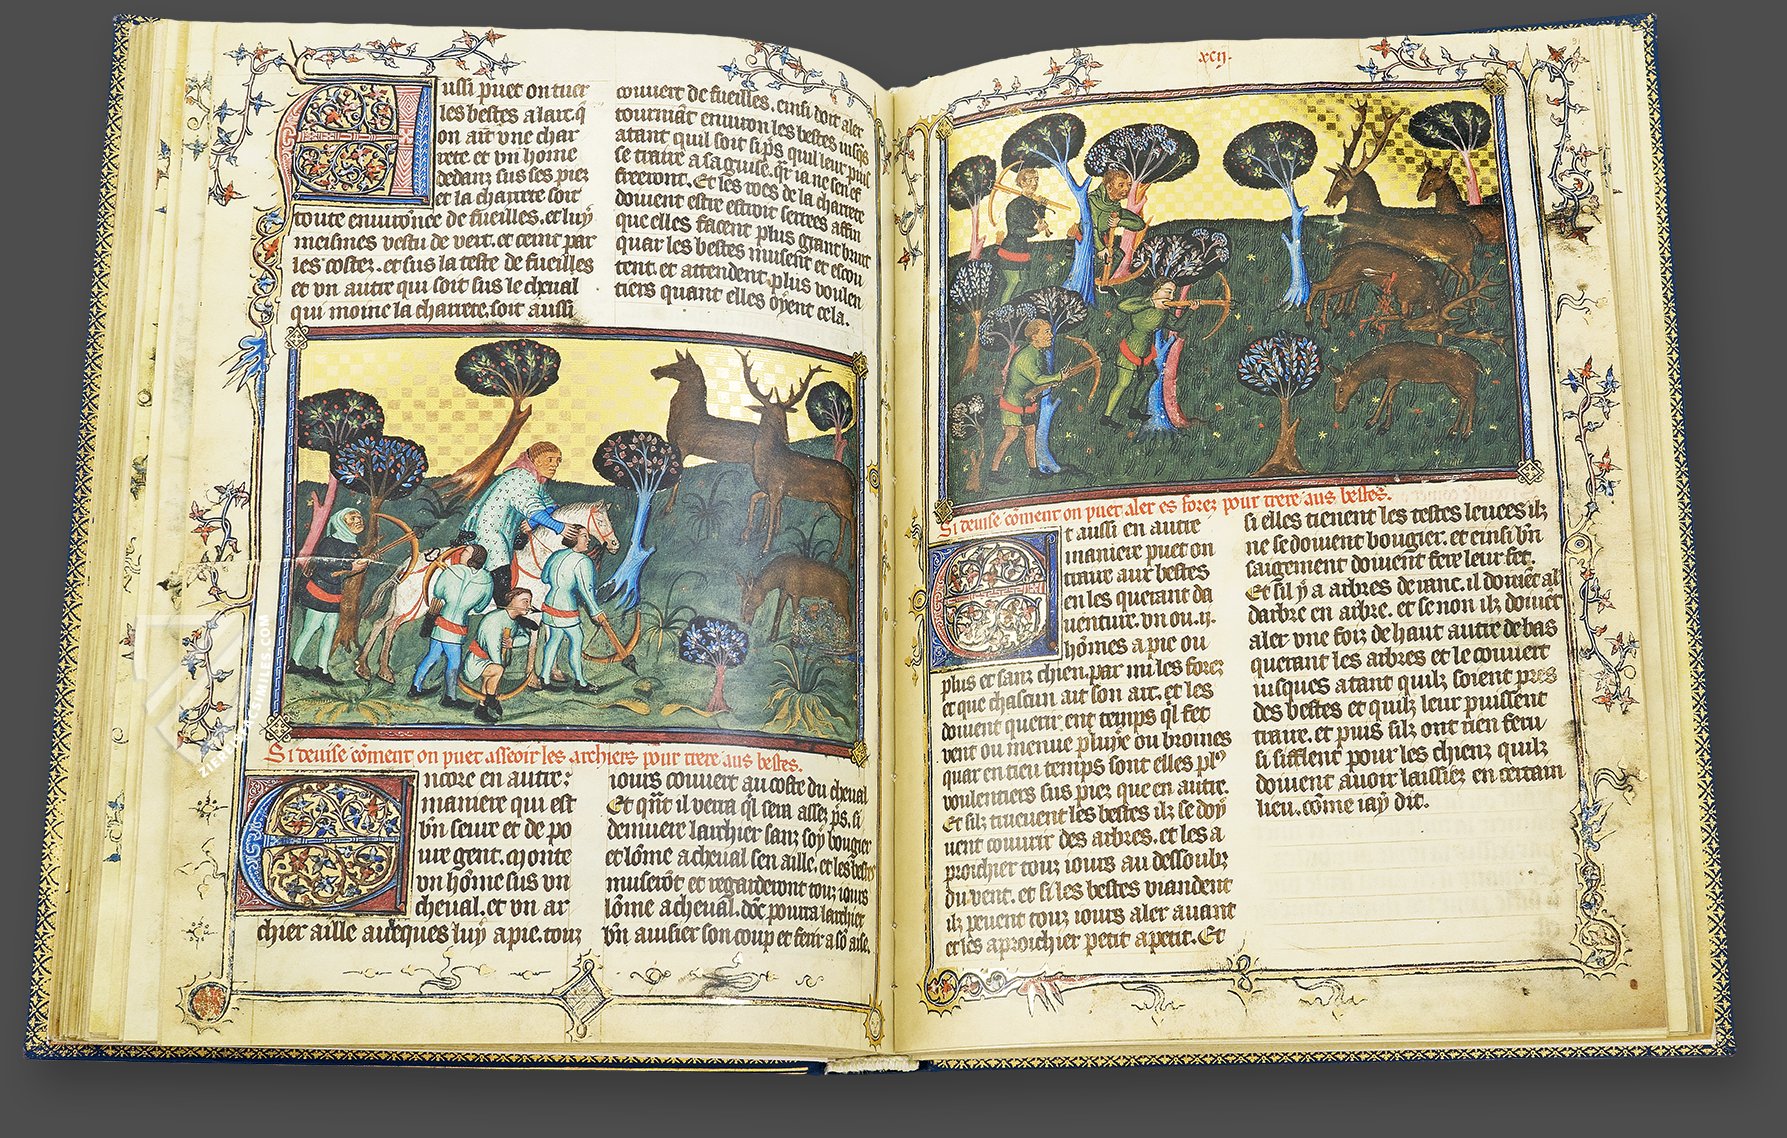 Aussi puet on tuer
les bestes a lart. q̃
on ait vne char
rete et vn home
dedanz sus ses piez
et la charrete soit
toute enuironee de fueilles. et luy
meismes vestu de vert. et ceint par
les costez. et sus la teste de fueilles
et vn autre qui soit sus le cheual
qui moine la charrete. soit aussi
couuert de fueilles. einsi doit aler
tourniãt enuiron les bestes iusqs
atant quil soit si ps. quil leur puist
se traire a sa guise. qr ia ne sen ef
freeront. Et les roes de la charrete
doiuent estre estroit serrees affin
que elles facent plus grant bruit
quar les bestes musent et escou
tent. et attendent plus voulen
tiers quant elles oyent cela.
Si deuise cõment on puet asseoir les archiers pour trere aus bestes.
Encore en autre
maniere qui est
bñ seure et de po
ure gent. monte
vn hõme sus vn
cheual. et vn ar
chier aille auecques luy a pie. touz
iours couuert au coste du cheual
Et qñt il verra ql sera assez ps. si
demuere larchier sanz soy bougier
et lõme a cheual sen aille. et les bestes
muserõt et regarderont touz iours
lõme a cheual. dõc pourra larchier
bñ auisier son coup et ferir a sõ aise.
xcij.
Si deuise cõment on puet aler es forez pour trere aus bestes.
Et aussi en autre
maniere puet on
traire aux bestes
en les querant da
uenture. vn ou .ij.
hõmes a pie ou
plus et sanz chien. par mi les forez
et que chascun ait son arc. et les
doiuent querir ent temps ql fet
vent ou menue pluye ou broines
quar en tieu temps sont elles pl9
voulentiers sus piez que en autre.
Et silz treuuent les bestes ilz se doy
uent couurir des arbres. et les a
proichier touz iours au dessoubz
du vent. et si les bestes viandent
ilz peuent touz iours aler auant
et les aproichier petit a petit. Et
si elles tienent les testes leuees ilz
ne se doiuent bougier. et einsi bñ
saigement doiuent fere leur fet.
Et sil y a arbres de ranc. il doiuẽt al
darbre en arbre. et se non ilz doiuẽt
aler vne foiz de haut autre de bas
querant les arbres et le couuert
iusques atant quilz soient pres
des bestes et quilz leur puissent
traire. et puis silz ont rien feru
si sifflent pour les chienz quilz
doiuent auoir laissiez en certain
lieu. cõme iay dit.
ZIEREIS FACSIMILES.COM